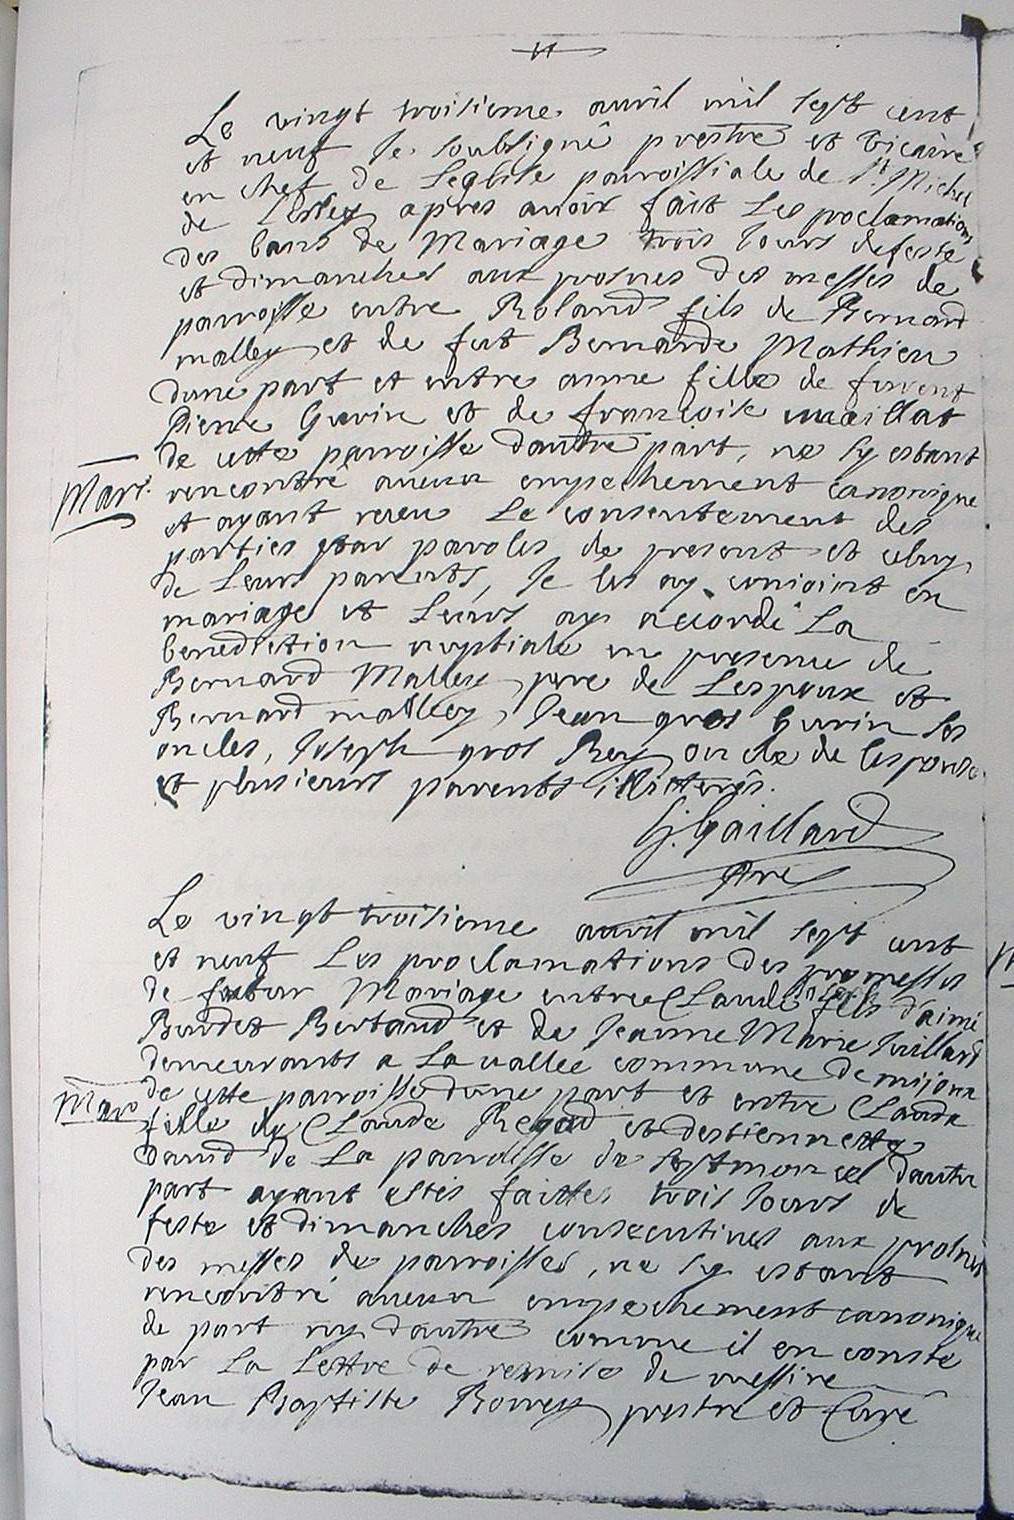 Le vingt troisieme avril mil sept cent
et neuf Je soubsigné prestre et vicaire
en chef de Leglise parroissiale de St. Michel
de Lellex apres avoir fait Les proclamations
des bans de Mariage trois Jours de feste
et dimanches aux prosnes des messes de
parroisse entre Roland fils de Bernard
malley et de fut Bernarde Mathieu
dune part et entre anne fille de fuvent
Pierre Gurin et de francoise maillat
de cette parroisse dautre part, ne sy estant
Mari.
rencontré aucun empechement canonique
et ayant receu Le consentement des
parties par paroles de present et celuy
de Leurs parents, Je les ay conioint en
mariage et Leurs ay accordé La
benediction nuptiale en presence de
Bernard Malley pere de Lespoux et
Bernard malley, Jean gros Gurin ses
oncles, Joseph gros Rey oncle de lespouse
et plusieurs parents illitterés.
Gaillard
ptre
Le vingt troisieme avril mil sept cent
et neuf Les proclamations des promesses
de futur Mariage entre Claude fils d'aimé
Burdet Bertand et de Jeanne Marie Juillard
demeurants a La vallée commune de mijoux
de cette parroisse dune part et entre Claude
Mari
fille de Claude Regad et destiennette
de La parroisse de septmoncel dautre
part ayant estés faittes trois Jours de
feste et dimanches consecutives aux prosnes
des messes de parroisses, ne sy estant
rencontré aucun empechement canonique
de part ny dautre comme il en conste
par La Lettre de remise de messire
Jean Baptiste prestre et Curé